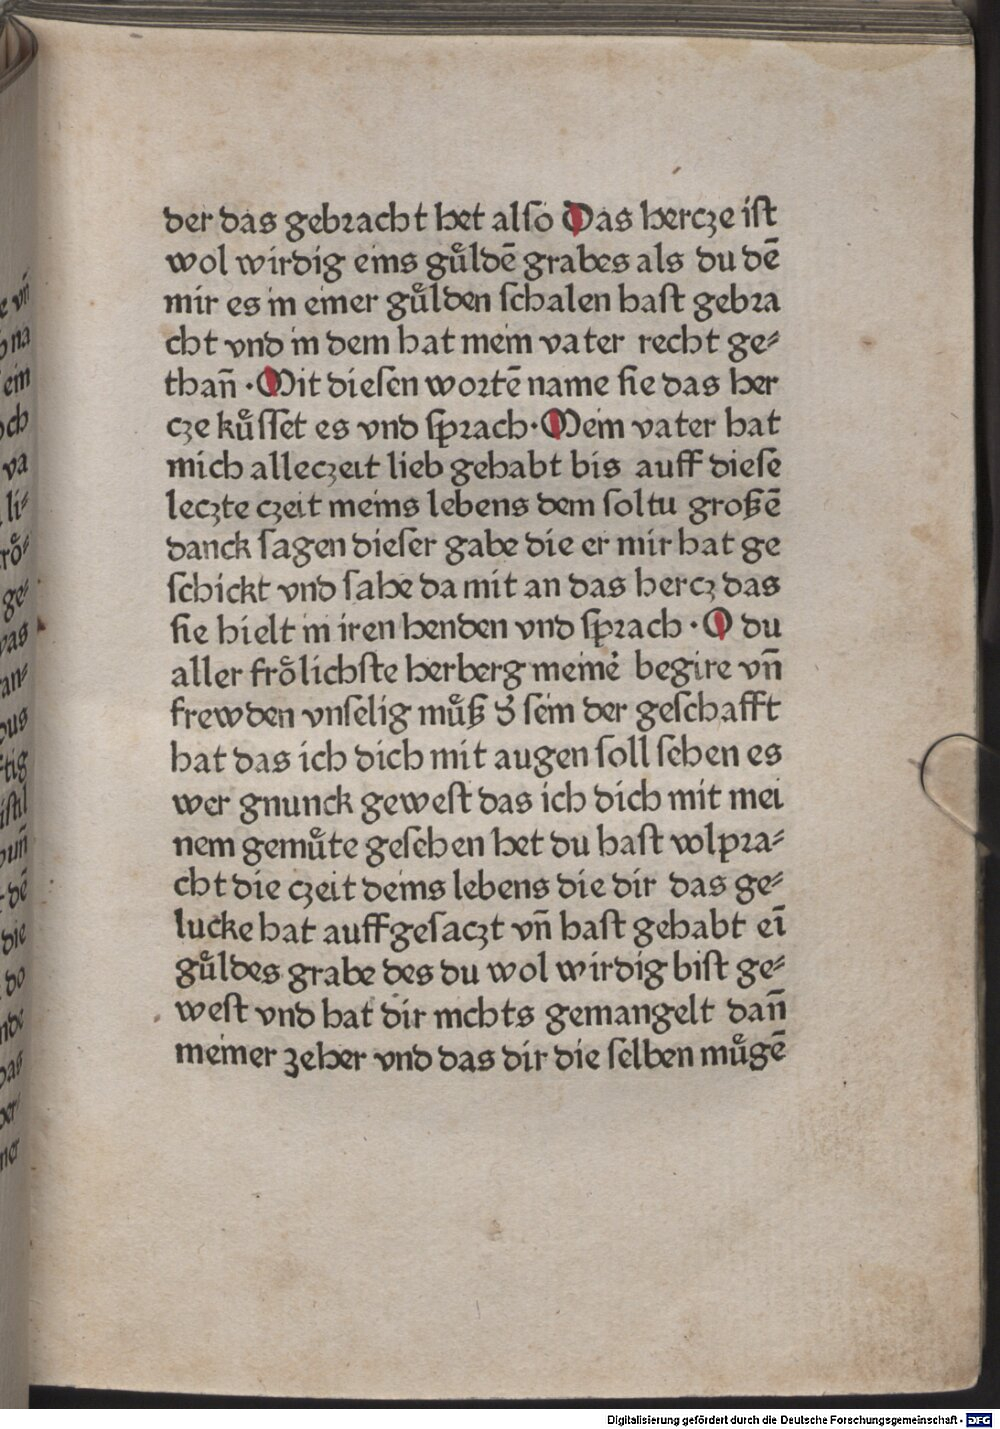 der das gebꝛacht het alſo Das hercze iſt
wol wirdig eins guͤldē grabes als du dē
mir es in einer guͤlden ſchalen haſt gebꝛa
cht vnd in dem hat mein vater recht ge⸗
than̄ ·Mit dieſen woꝛtē name ſie das her
cze kuͤſſet es vnd ſpꝛach·Mein vater hat
mich alleczeit lieb gehabt bis auff dieſe
leczte czeit meins lebens dem ſoltu großē
danck ſagen dieſer gabe die er mir hat ge
ſchickt vnd ſahe da mit an das hercz das
ſie hielt in iren henden vnd ſpꝛach · O du
aller froͤlichſte herberg meine͛ begire vn̄
frewden vnſelig muͤß d͛ ſein der geſchafft
hat das ich dich mit augen ſoll ſehen es
wer gnunck geweſt das ich dich mit mei
nem gemuͤte geſehen het du haſt volpꝛa⸗
cht die czeit deins lebens die dir das ge⸗
lucke hat auffgeſaczt vn̄ haſt gehabt eī
guͤldes grabe des du wol wirdig biſt ge⸗
weſt vnd hat dir nichts gemangelt dan̄
meiner zeher vnd das dir die ſelben muͤgē
e vn̄
na
ein
och
va
li⸗
roͤ⸗
ge⸗
vas
an⸗
ous
tig
iſtil
un̄
dē
die
do
nde
das
ber⸗
ner
Digitalisierung gefördert durch die Deutsche Forschungsgemeinschaft - DFG